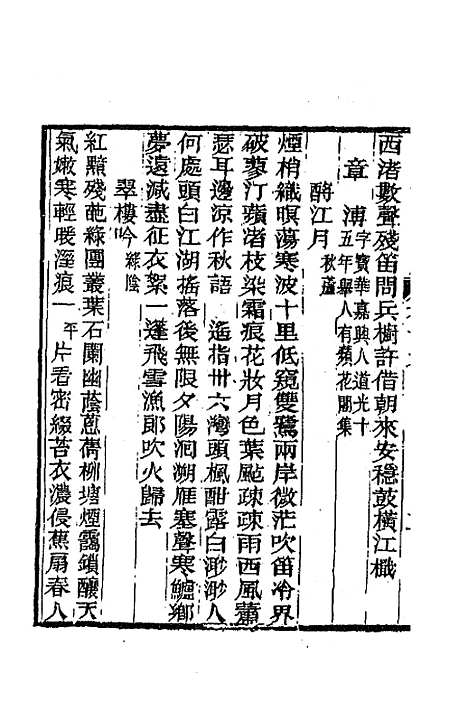 西渚數聲殘笛問兵樹許借朝來安穩鼓橫江檝
章溥字寶華嘉興人道光十五年舉人有蘋花閣集
酹江月秋蘆
煙梢織暝蕩寒波十里低窺雙鷺兩岸微茫吹笛冷界
破蓼汀蘋渚枝染霜痕花妝月色葉颭疎疎雨西風蕭
瑟耳邊涼作秋語　遙指卅六灣頭楓酣露白渺渺人
何處頭白江湖搖落後無限夕陽洄溯雁塞聲寒鱸鄉
夢遠減盡征衣絮一蓬飛雪漁郎吹火歸去
翠樓吟綠陰
紅黯殘葩綠團叢葉石闌幽蔭蔥蒨柳塘煙靄鎖釀天
氣嫩寒輕暖溼痕一平片看密綴苔衣濃侵蕉扇春人